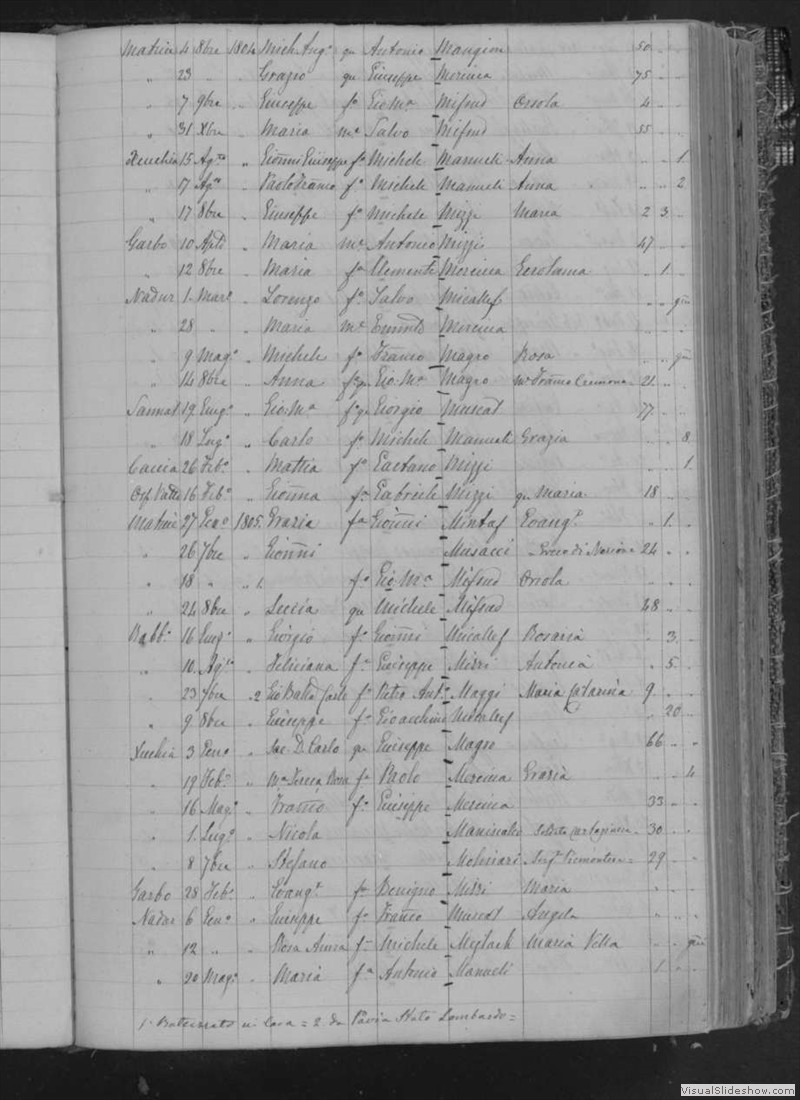 Matrice 4 8bre 1804 Mich. Ang.o qu Antonio Mangion 50
" 23 " " Grazio qu Giuseppe Mercieca 75
" 7 9bre " Giuseppe fo Gio Ma Mifsud Orsola 4
" 31 Xbre " Maria me Salvo Mifsud 55
Xeuchia 15 " Gionni Giuseppe fo Michele Manueli Anna 1
" 17 " Paolo Franco fo Michele Manueli Anna 2
" 17 8bre " Giuseppe fo Michele Mizzi Maria 2 3
Garbo 10 Aple " Maria me Antonio Mizzi 47
" 12 8bre " Maria fa Clemente Mercieca Gerolama 1
Nadur 1. Maro " Lorenzo fo Salvo Micallef
" 28 " " Maria me Mercieca
" 9 Mago " Michele fo Franco Magro Rosa
" 14 8bre " Anna Gio. Ma Magro Franco Cremona 21
Sannat 19 Giugo " Gio. Ma Giorgio Muscat 77
" 18 Lugo " Carlo fo Michele Manueli Grazia 8
Caccia 26 Febo " Mattia fo Gaetano Mizzi 1
16 Febo " Gionna fa Gabriele Mizzi qu Maria 18
Matrice 27 Geno 1805. Grazia fa Gionni Mintof Evanga 1.
" 26 7bre " Gionni Musacci 24
" 18 " " 1. fo Gio Ma Mifsud Orsola
" 24 8bre " Lucia qu Michele Mifsud 48
Rabbo 16 Giugo " Giorgio fo Gionni Micallef Rosaria 3
" 10. Ago " Feliciana fa Giuseppe Mizzi Antonia 5
" 23 7bre " 2 Gio Batta Carlo fo Pietro Anto Maggi Maria Catarina 9
" 9 8bre " Giuseppe fo Gioacchino Micallef 20
Xeuchia 3 Geno " Sac. D. Carlo qu Giuseppe Magro 66
" 19 Febo " Ma Teresa Rosa fa Paolo Mercieca Grazia 4
" 16 Mago " Franco fo Giuseppe Mercieca 33
" 1. Lugo " Nicola 30
" 8 7bre " Stefano Molinari 29
Garbo 28 Febo " Evanga fa Benigno Mizzi Maria
Nadur 6 Geno " Giuseppe fo Franco Muscat Angela
" 12 " " Rosa Anna fa Michele Meylack Maria Vella
" 20 Mago " Maria fa Antonio Manueli 1
1. Battezzato in Casa = 2 da Pavia Stato Lombardo =
VisualSlideshow.com